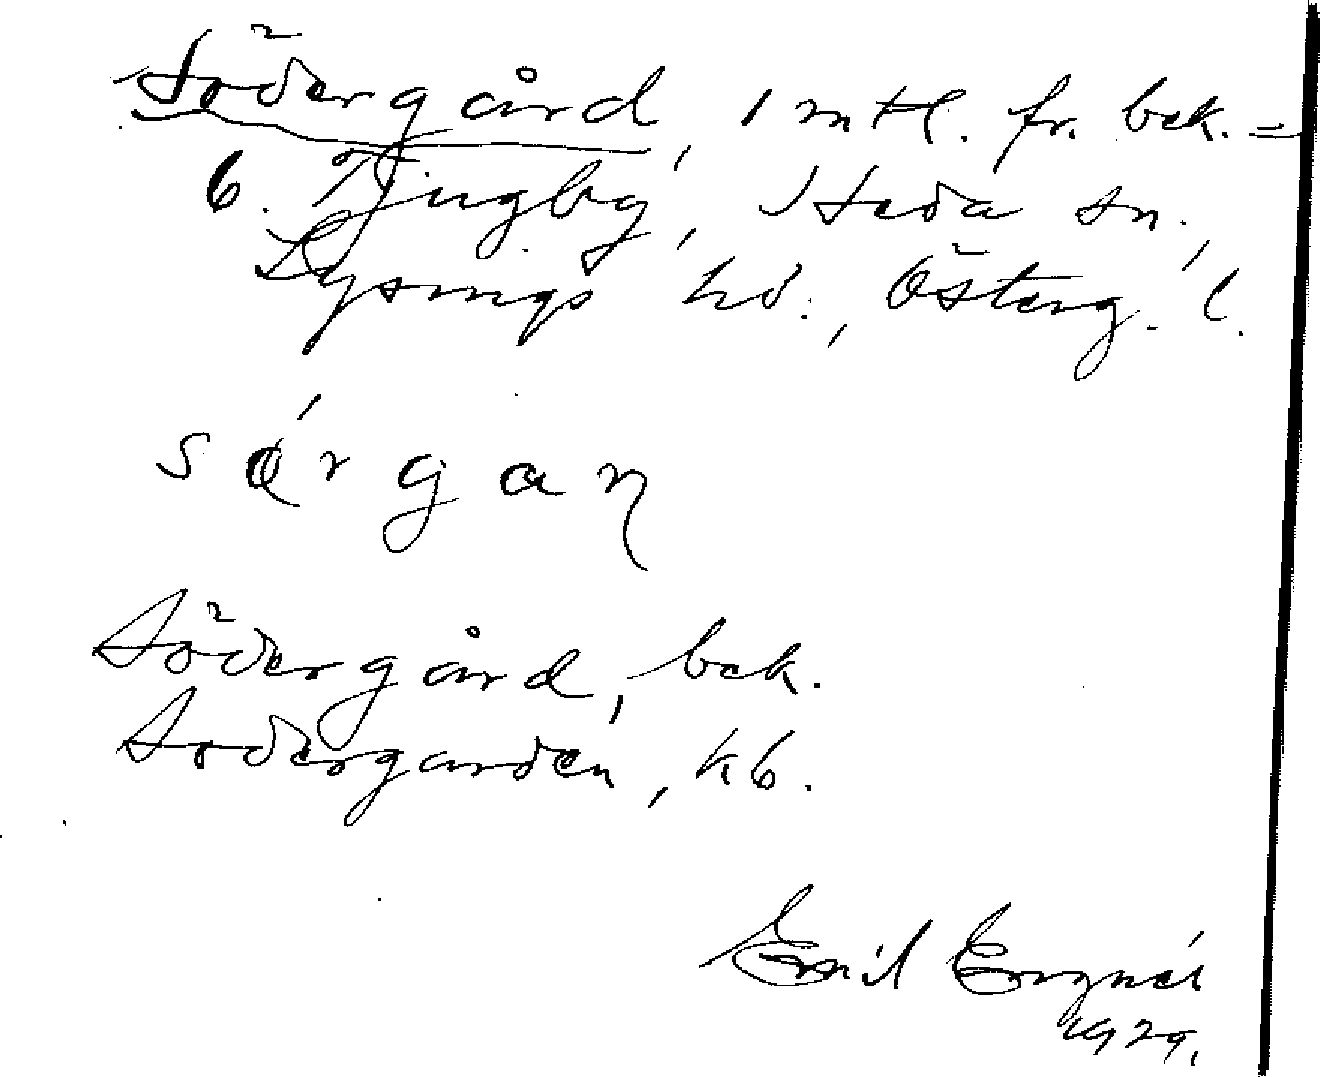 Södergård, 1 mtl. fr. bek. =
6. Tjugby, Heda sn.,
Lysings hd., Österg. l.
sǿrgan
Södergård, bek.
Södergården, kb.
Emil
1929.